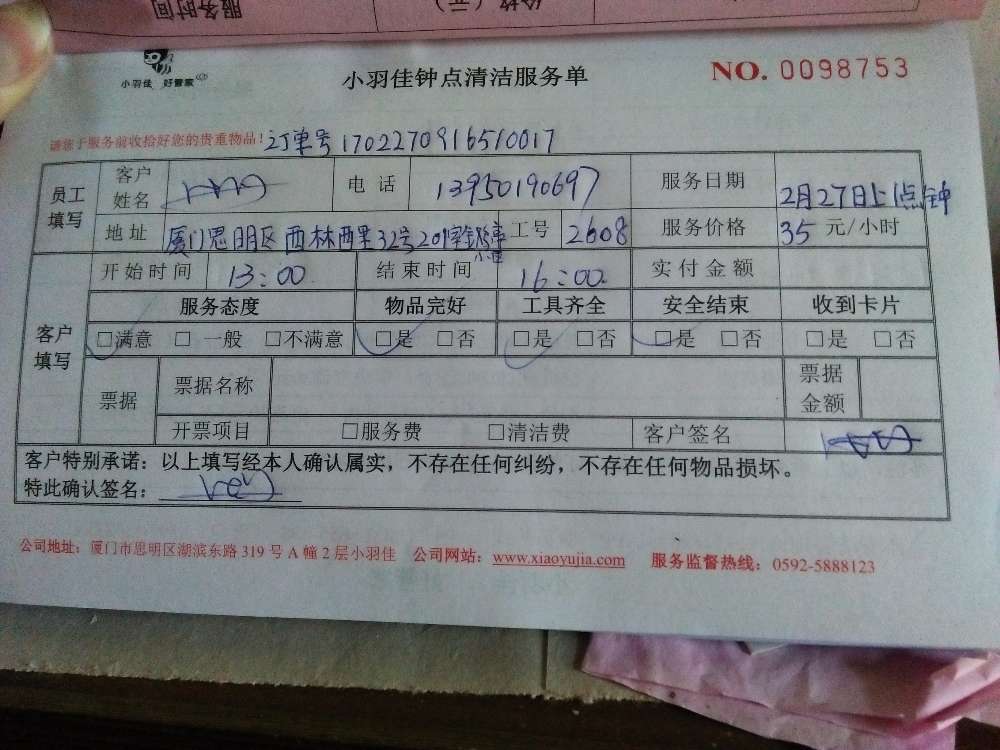 服务时间
价格（元）
小羽佳 好管家
小羽佳钟点清洁服务单
NO. 0098753
请您于服务前收拾好您的贵重物品！订单号1702270916510017
员工填写 客户姓名 电话 13950190697 服务日期 2月27日上1点钟
地址 厦门思明区西林西里32号201室 工号 2608 服务价格 35 元/小时
客户填写 开始时间 13:00 结束时间 16:00 实付金额
服务态度 物品完好 工具齐全 安全结束 收到卡片
□满意 □一般 □不满意 □是 □否 □是 □否 □是 □否 □是 □否
票据 票据名称 票据金额
开票项目 □服务费 □清洁费 客户签名
客户特别承诺：以上填写经本人确认属实，不存在任何纠纷，不存在任何物品损坏。
特此确认签名：
公司地址：厦门市思明区湖滨东路 319 号 A 幢 2 层小羽佳 公司网站：www.xiaoyujia.com 服务监督热线：0592-5888123